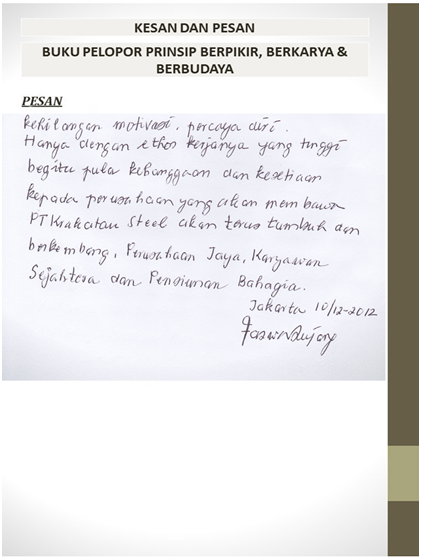 KESAN DAN PESAN
BUKU PELOPOR PRINSIP BERPIKIR, BERKARYA &
BERBUDAYA
PESAN
kehilangan motivasi, percaya diri.
Hanya dengan ethos kerjanya yang tinggi
begitu pula kebanggaan dan kesetiaan
kepada perusahaan yang akan membawa
PT Krakatau Steel akan terus tumbuh dan
berkembang, Perusahaan Jaya, Karyawan
Sejahtera dan Pensiunan Bahagia.
Jakarta 10/12-2012